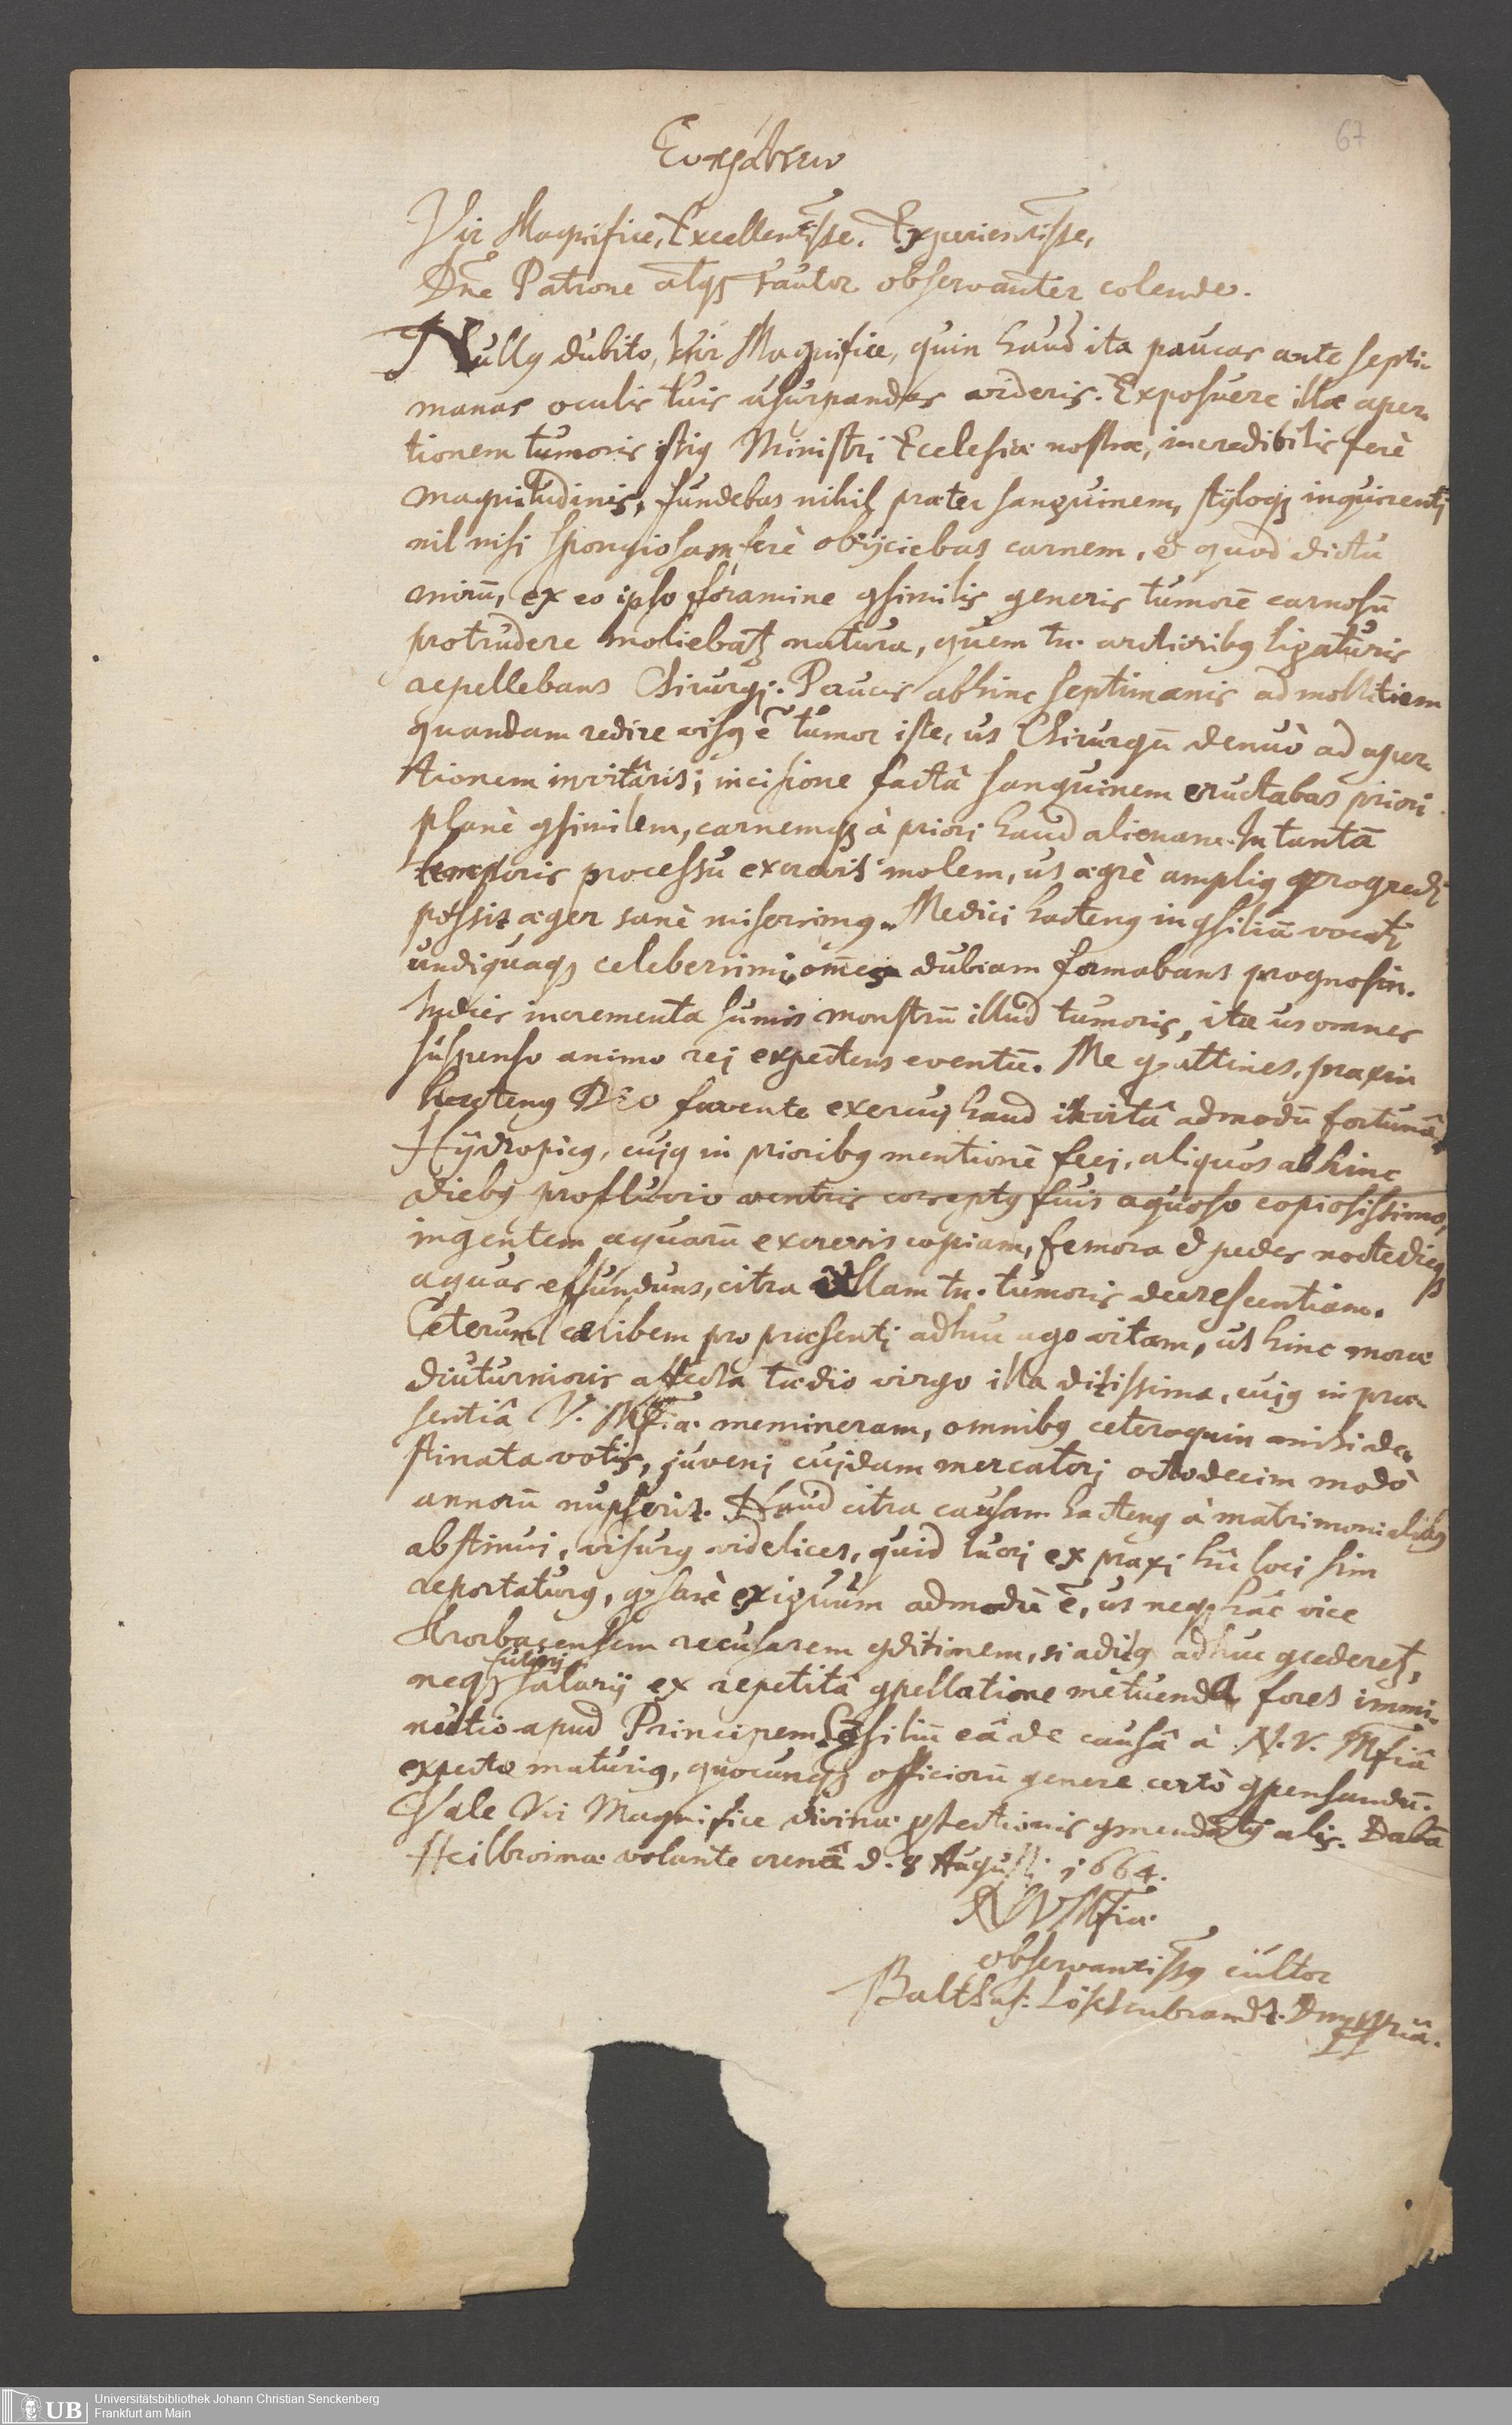 67
Εὐπράττειν
Vir Magnifice, Excellentisse. Experientisse,
Dnē Patrone atq3 Fautor observanter colende.
Nullus dubito, Vir Magnifice, quin haud ita paucas ante septi-
manas oculis tuis usurpandas videris. Exposuere illæ aper-
tionem tumoris istius Ministri Ecclesiæ nostræ, incredibilis ferè
magnitudinis, fundebat nihil præter sanguinem, styloq3 inquirenti
nil nisi spongiosam ferè obijciebat carnem, & quod dictu
mirū, ex eo ipso foramine consimilis generis tumorē carnosū
protrudere moliebatr natura, quem tn. arctioribus ligaturis
repellebant Chirurgi. Paucis abhinc septimanis ad mollitiem
quandam redire visus ē tumor iste, ut Chirurgū denuò ad aper-
tionem invitârit; incisione factâ sanguinem eructabat priori
planè consimilem, carnemq3 à priori haud alienam. In tantā
temporis processu excrevit molem, ut ægrè amplius progredi
possit æger sanè miserrimus. Medici hactenus in consiliū vocati
undiquaq3 celeberrimi, omēs dubiam formabant prognosin.
Indies incrementa sumit monstrū illud tumoris, ita ut omnes
suspenso animo rei expectent eventū. Me quod attinet, praxin
hactenus DEO favente exercui haud invitâ admodū fortunâ,
Hydropicus, cujus in prioribus mentionē feci, aliquot abhinc
diebus profluvio ventris correptus fuit aquoso copiosissimo,
ingentem aquarū excrevit copiam, femora & pedes nocte dieq3
aquas effundunt, citra ullam tn. tumoris decrescentiam.
Ceterum cælibem pro præsenti adhuc ago vitam, ut hinc moræ
diuturnioris affecta tædio virgo illa ditissima, cujus in præ-
sentiâ V. Mfiæ. memineram, omnibus ceteroquin mihi de-
stinata votis, juveni cuidam mercatori octodecim modò
annorū nupserit. Haud citra causam hactenus à matrimonialibus
abstinui, visurus videlicet, quid lucri ex praxi hîc loci sim
reportaturus, quod sanè exiguum admodū ē, ut neq3 hâc vice
Trorbacensem recusarem conditionem, si aditus adhuc concederetr,
neq3 futuri salarij ex repetitâ compellatione metuenda foret immi-
nutio apud Principem. Consiliū eâ de causâ à N. V. Mfiâ
expecto maturius, quocunq3 officiorū genere certò compensandū.
Vale Vir Magnifice divinæ protectionis commendatus alis. Dabā
Heilbronnæ volante cursū d. 8 Augusti 1664.
N V Mfiæ.
observantissus cultor
Balthas: Löschenbrandt. D mppriâ.
UB
Universitätsbibliothek Johann Christian Senckenberg
Frankfurt am Main